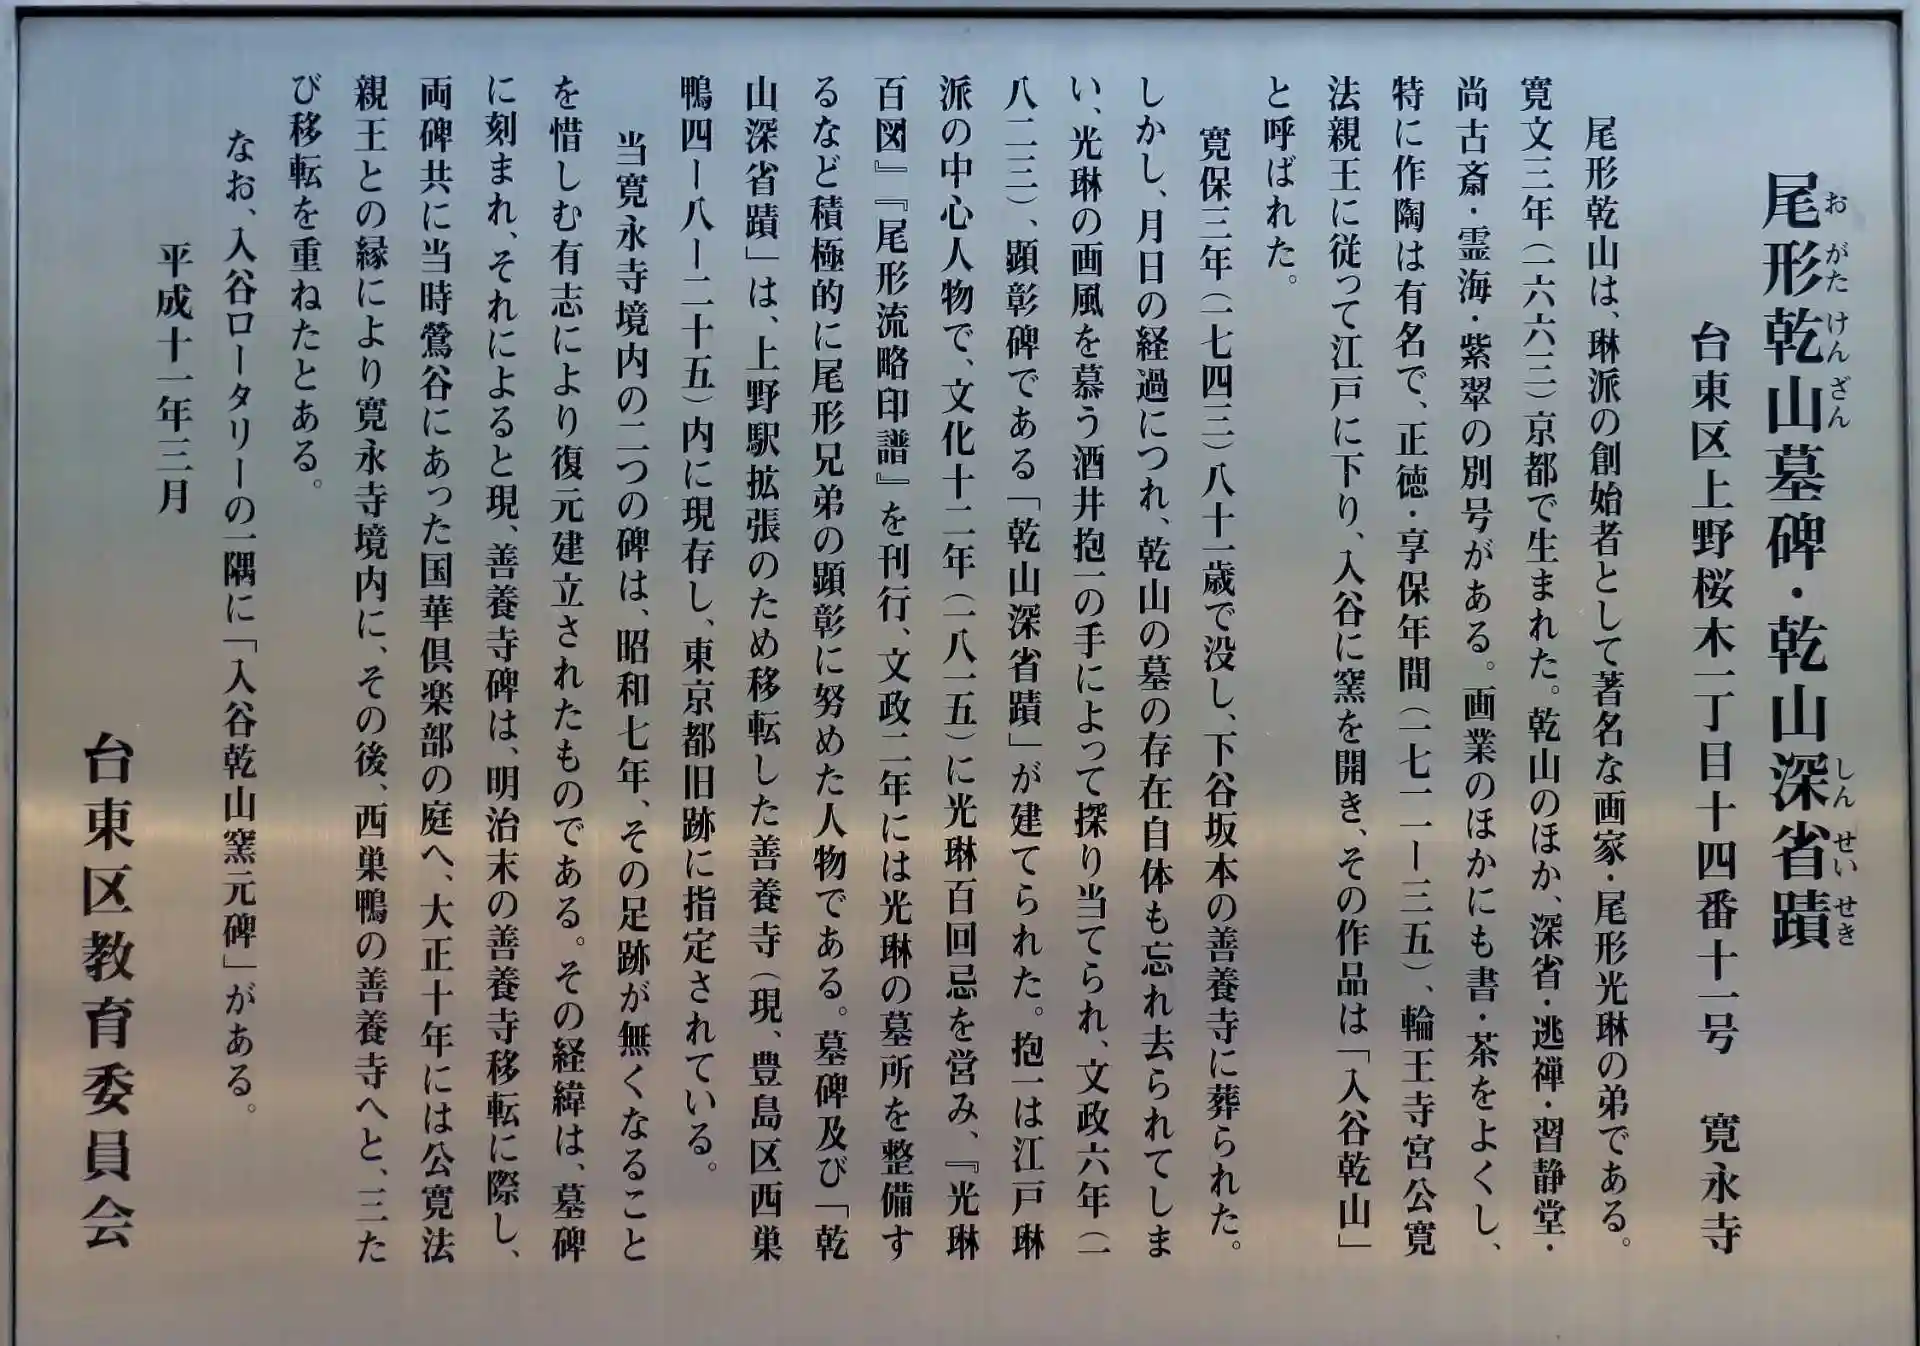 尾形乾山墓碑・乾山深省蹟
おがたけんざん しんせいせき
台東区上野桜木一丁目十四番十一号　寛永寺
尾形乾山は、琳派の創始者として著名な画家・尾形光琳の弟である。
寛文三年（一六六三）京都で生まれた。乾山のほか、深省・逃禅・習静堂・
尚古斎・霊海・紫翠の別号がある。画業のほかにも書・茶をよくし、
特に作陶は有名で、正徳・享保年間（一七一一ー三五）、輪王寺宮公寛
法親王に従って江戸に下り、入谷に窯を開き、その作品は「入谷乾山」
と呼ばれた。
寛保三年（一七四三）八十一歳で没し、下谷坂本の善養寺に葬られた。
しかし、月日の経過につれ、乾山の墓の存在自体も忘れ去られてしま
い、光琳の画風を慕う酒井抱一の手によって探り当てられ、文政六年（一
八二三）、顕彰碑である「乾山深省蹟」が建てられた。抱一は江戸琳
派の中心人物で、文化十二年（一八一五）に光琳百回忌を営み、『光琳
百図』『尾形流略印譜』を刊行、文政二年には光琳の墓所を整備す
るなど積極的に尾形兄弟の顕彰に努めた人物である。墓碑及び「乾
山深省蹟」は、上野駅拡張のため移転した善養寺（現、豊島区西巣
鴨四ー八ー二十五）内に現存し、東京都旧跡に指定されている。
当寛永寺境内の二つの碑は、昭和七年、その足跡が無くなること
を惜しむ有志により復元建立されたものである。その経緯は、墓碑
に刻まれ、それによると現、善養寺碑は、明治末の善養寺移転に際し、
両碑共に当時鶯谷にあった国華倶楽部の庭へ、大正十年には公寛法
親王との縁により寛永寺境内に、その後、西巣鴨の善養寺へと、三た
び移転を重ねたとある。
なお、入谷ロータリーの一隅に「入谷乾山窯元碑」がある。
平成十一年三月
台東区教育委員会